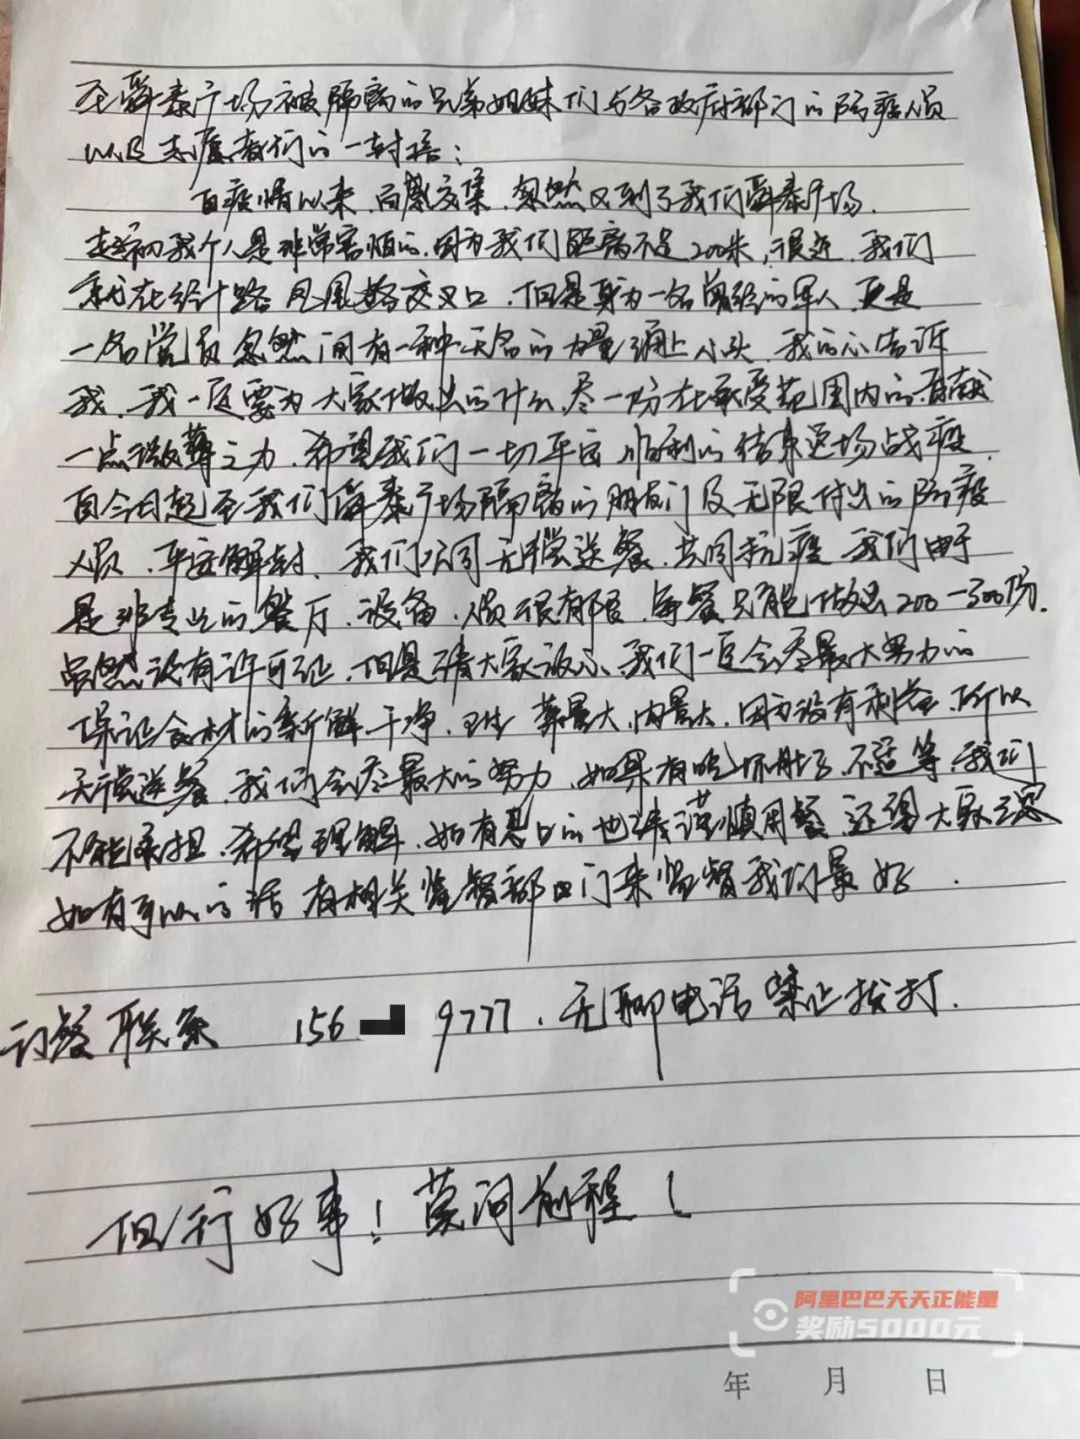 至舜泰广场被隔离的兄弟姐妹们与各政府部门的防疫人员
以及志愿者们的一封信：
自疫情以来，百感交集，忽然又到了我们舜泰广场，
起初我个人是非常害怕的，因为我们距离不足200米，很近，我们
就在经十路凤凰路交叉口，但是身为一名曾经的军人，更是
一名党员忽然间有一种无名的力量涌上心头，我的心告诉
我，我一定要为大家做点什么，尽一份在承受范围内的，贡献
一点微薄之力，希望我们一切平安顺利的结束这场战疫，
自今日起至我们舜泰广场隔离的朋友们及无限付出的防疫
人员，平安解封，我们公司无偿送餐，共同抗疫，我们由于
是非专业的餐厅，设备，人员很有限，每餐只能做出200-300份，
虽然没有许可证，但是请大家放心，我们一定会尽最大努力的
保证食材的新鲜干净，卫生，菜量大，肉量大，因为没有利益，所以
无偿送餐，我们会尽最大的努力，如果有吃坏肚子，不适等，我们
不能承担，希望理解，如有忌口的也请谨慎用餐，还望大家
如有可以的话有相关监督部门来监督我们最好．
订餐联系 156 9777，无聊电话禁止拨打．
但行好事！莫问前程！
阿里巴巴天天正能量
奖励5000元
年 月 日